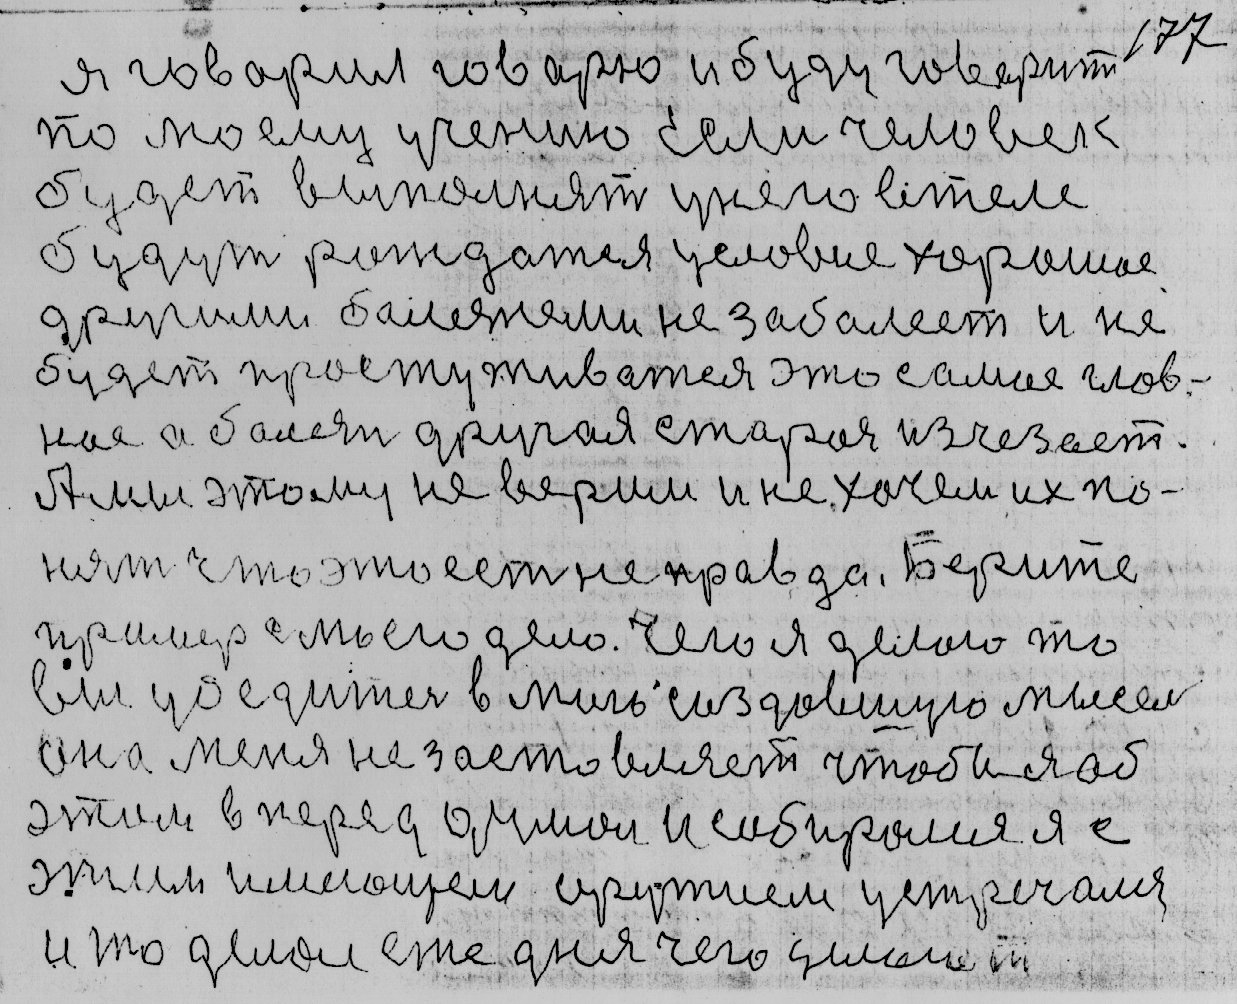 177
я говорил говарю и буду говарит
по моему учению если человек
будет выполнят у него втеле
будут рождатся условие хорошие
другими балезнеми не забалеет и не
будет простуживатся это самое глав-
ное а балезн другая старая изчезает.
А мы этому не верим и не хочем их по-
нят что это ест не правда. Берите
пример с моего дело. Чего я делаю то
вы убедитес в мою создавшую мысел
она меня не заставляет чтобы я об
этом в перед думал и собиралия я с
этим имеющем оружием устречалия
и то делал еже дня чего делают